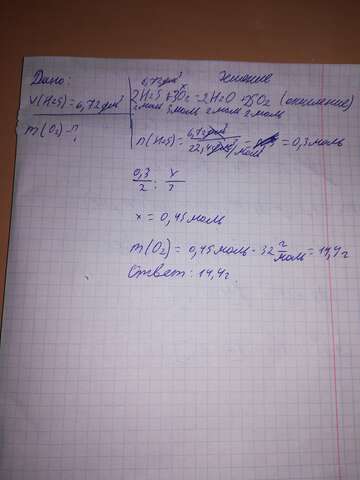 Дано:
Решение
V(H2S)=6,72дм³
m(O2)-?
6,72дм³ x
2H2S+3O2=2H2O+2SO2 (окисление)
2моль 3моль 2моль 2моль
n(H2S)=6,72дм³/22,4дм³/моль= =0,3моль
0,3/2 : x/3
x=0,45моль
m(O2)=0,45моль·32г/моль=14,4г
Ответ: 14,4г